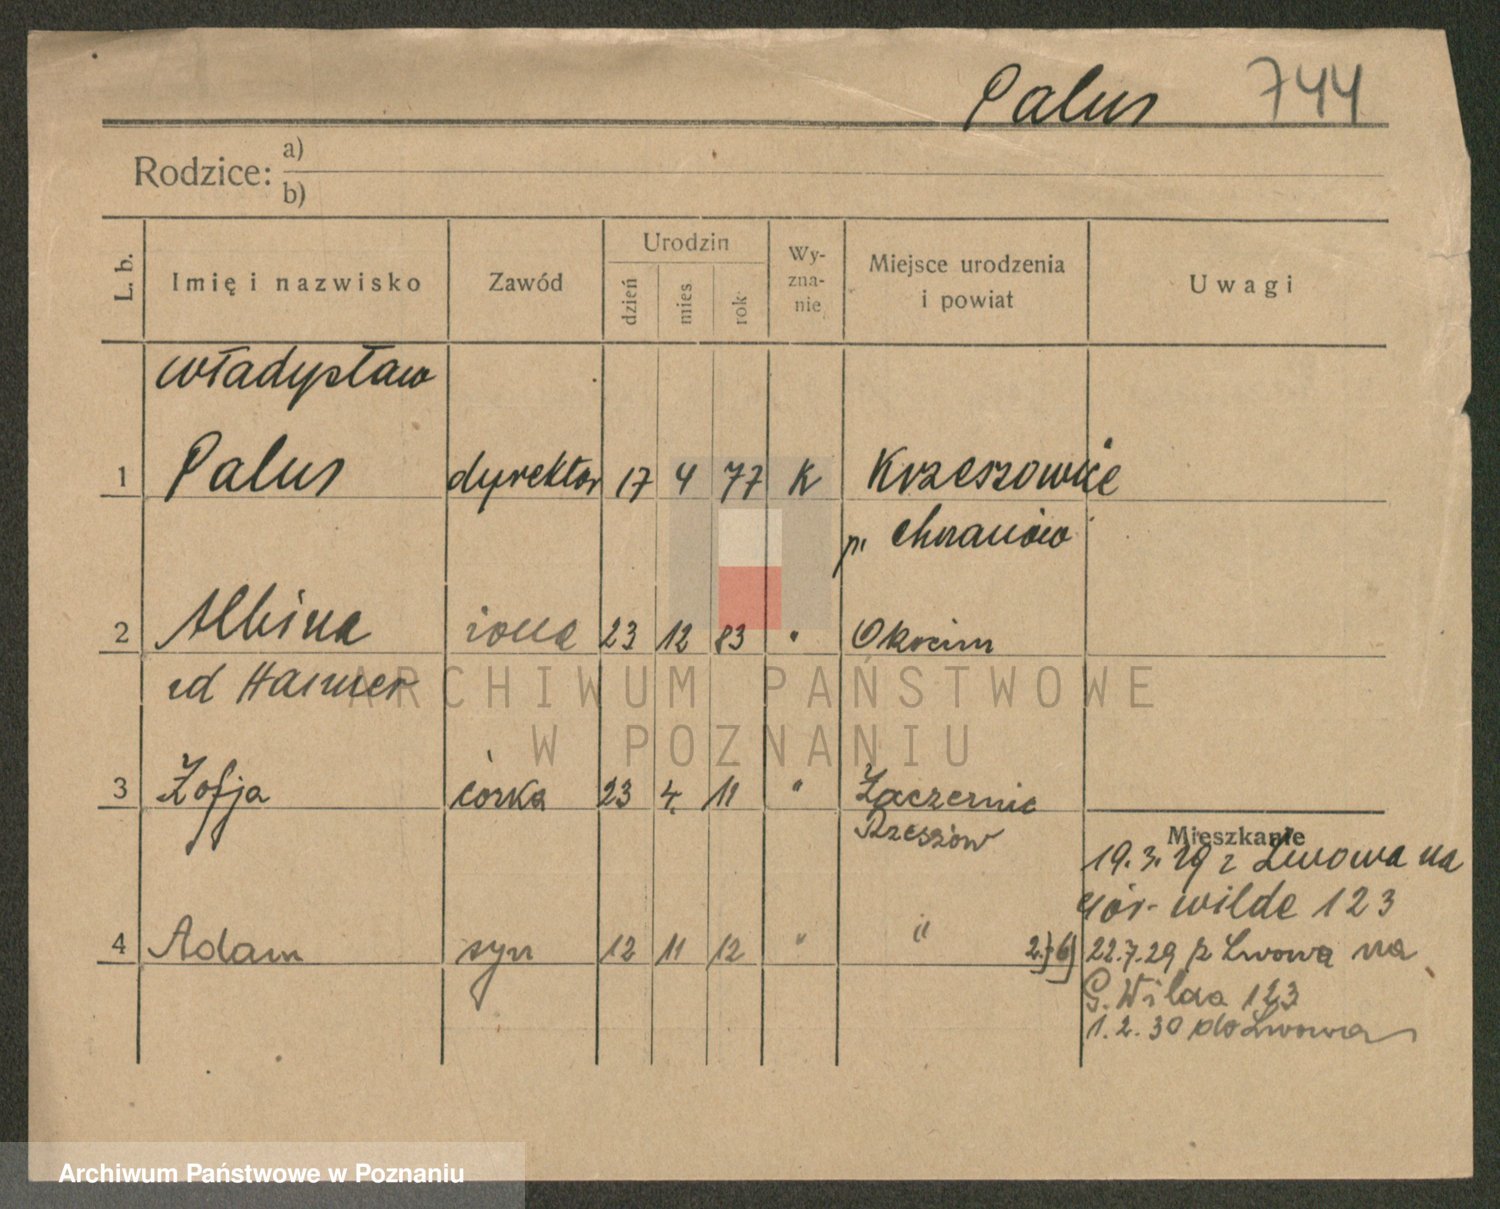 Palus 744
Rodzice: a)
b)
L. b. Imię i nazwisko Zawód Urodzin dzień mies rok Wy-zna-nie Miejsce urodzenia i powiat Uwagi
Władysław
1 Palus dyrektor 17 4 77 K Krzeszowice
p. Chrzanów
2 Albina żona 23 12 83 " Okocim
Hammer
3 Zofja córka 23 4. 11 " Zaczernie
Rzeszów
Mieszkanie
19.3.29 z Lwowa na
Gór- Wilde 123
4 Adam syn 12 11 12 " "
22.7.29 z Lwowa na
G. Wilda 123
1.2.30 do Lwowa
ARCHIWUM PAŃSTWOWE
W POZNANIU
Archiwum Państwowe w Poznaniu